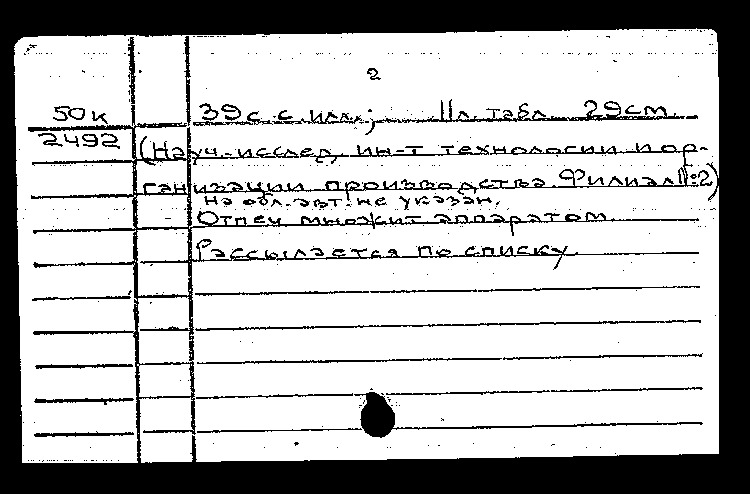 2
50к 39с. с илл.; 11л. табл. 29см.
2492 (Науч.-исслед, ин-т технологии и ор-
ганизации производства. Филиал №2)
На обл. авт. не указан.
Отпеч множит аппаратом.
Рассылается по списку.